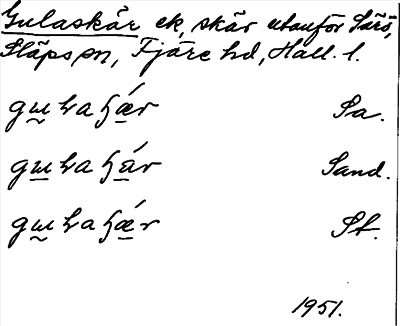 Gulaskär ek, skär utanför Särö,
Släps sn, Fjäre hd, Hall. l.
gɯ̰ɬaɧǽ̠r Sa.
gɯ̠ɬaɧá̠r Sand.
gɯ̰ɬaɧǽ̠r St.
1951.